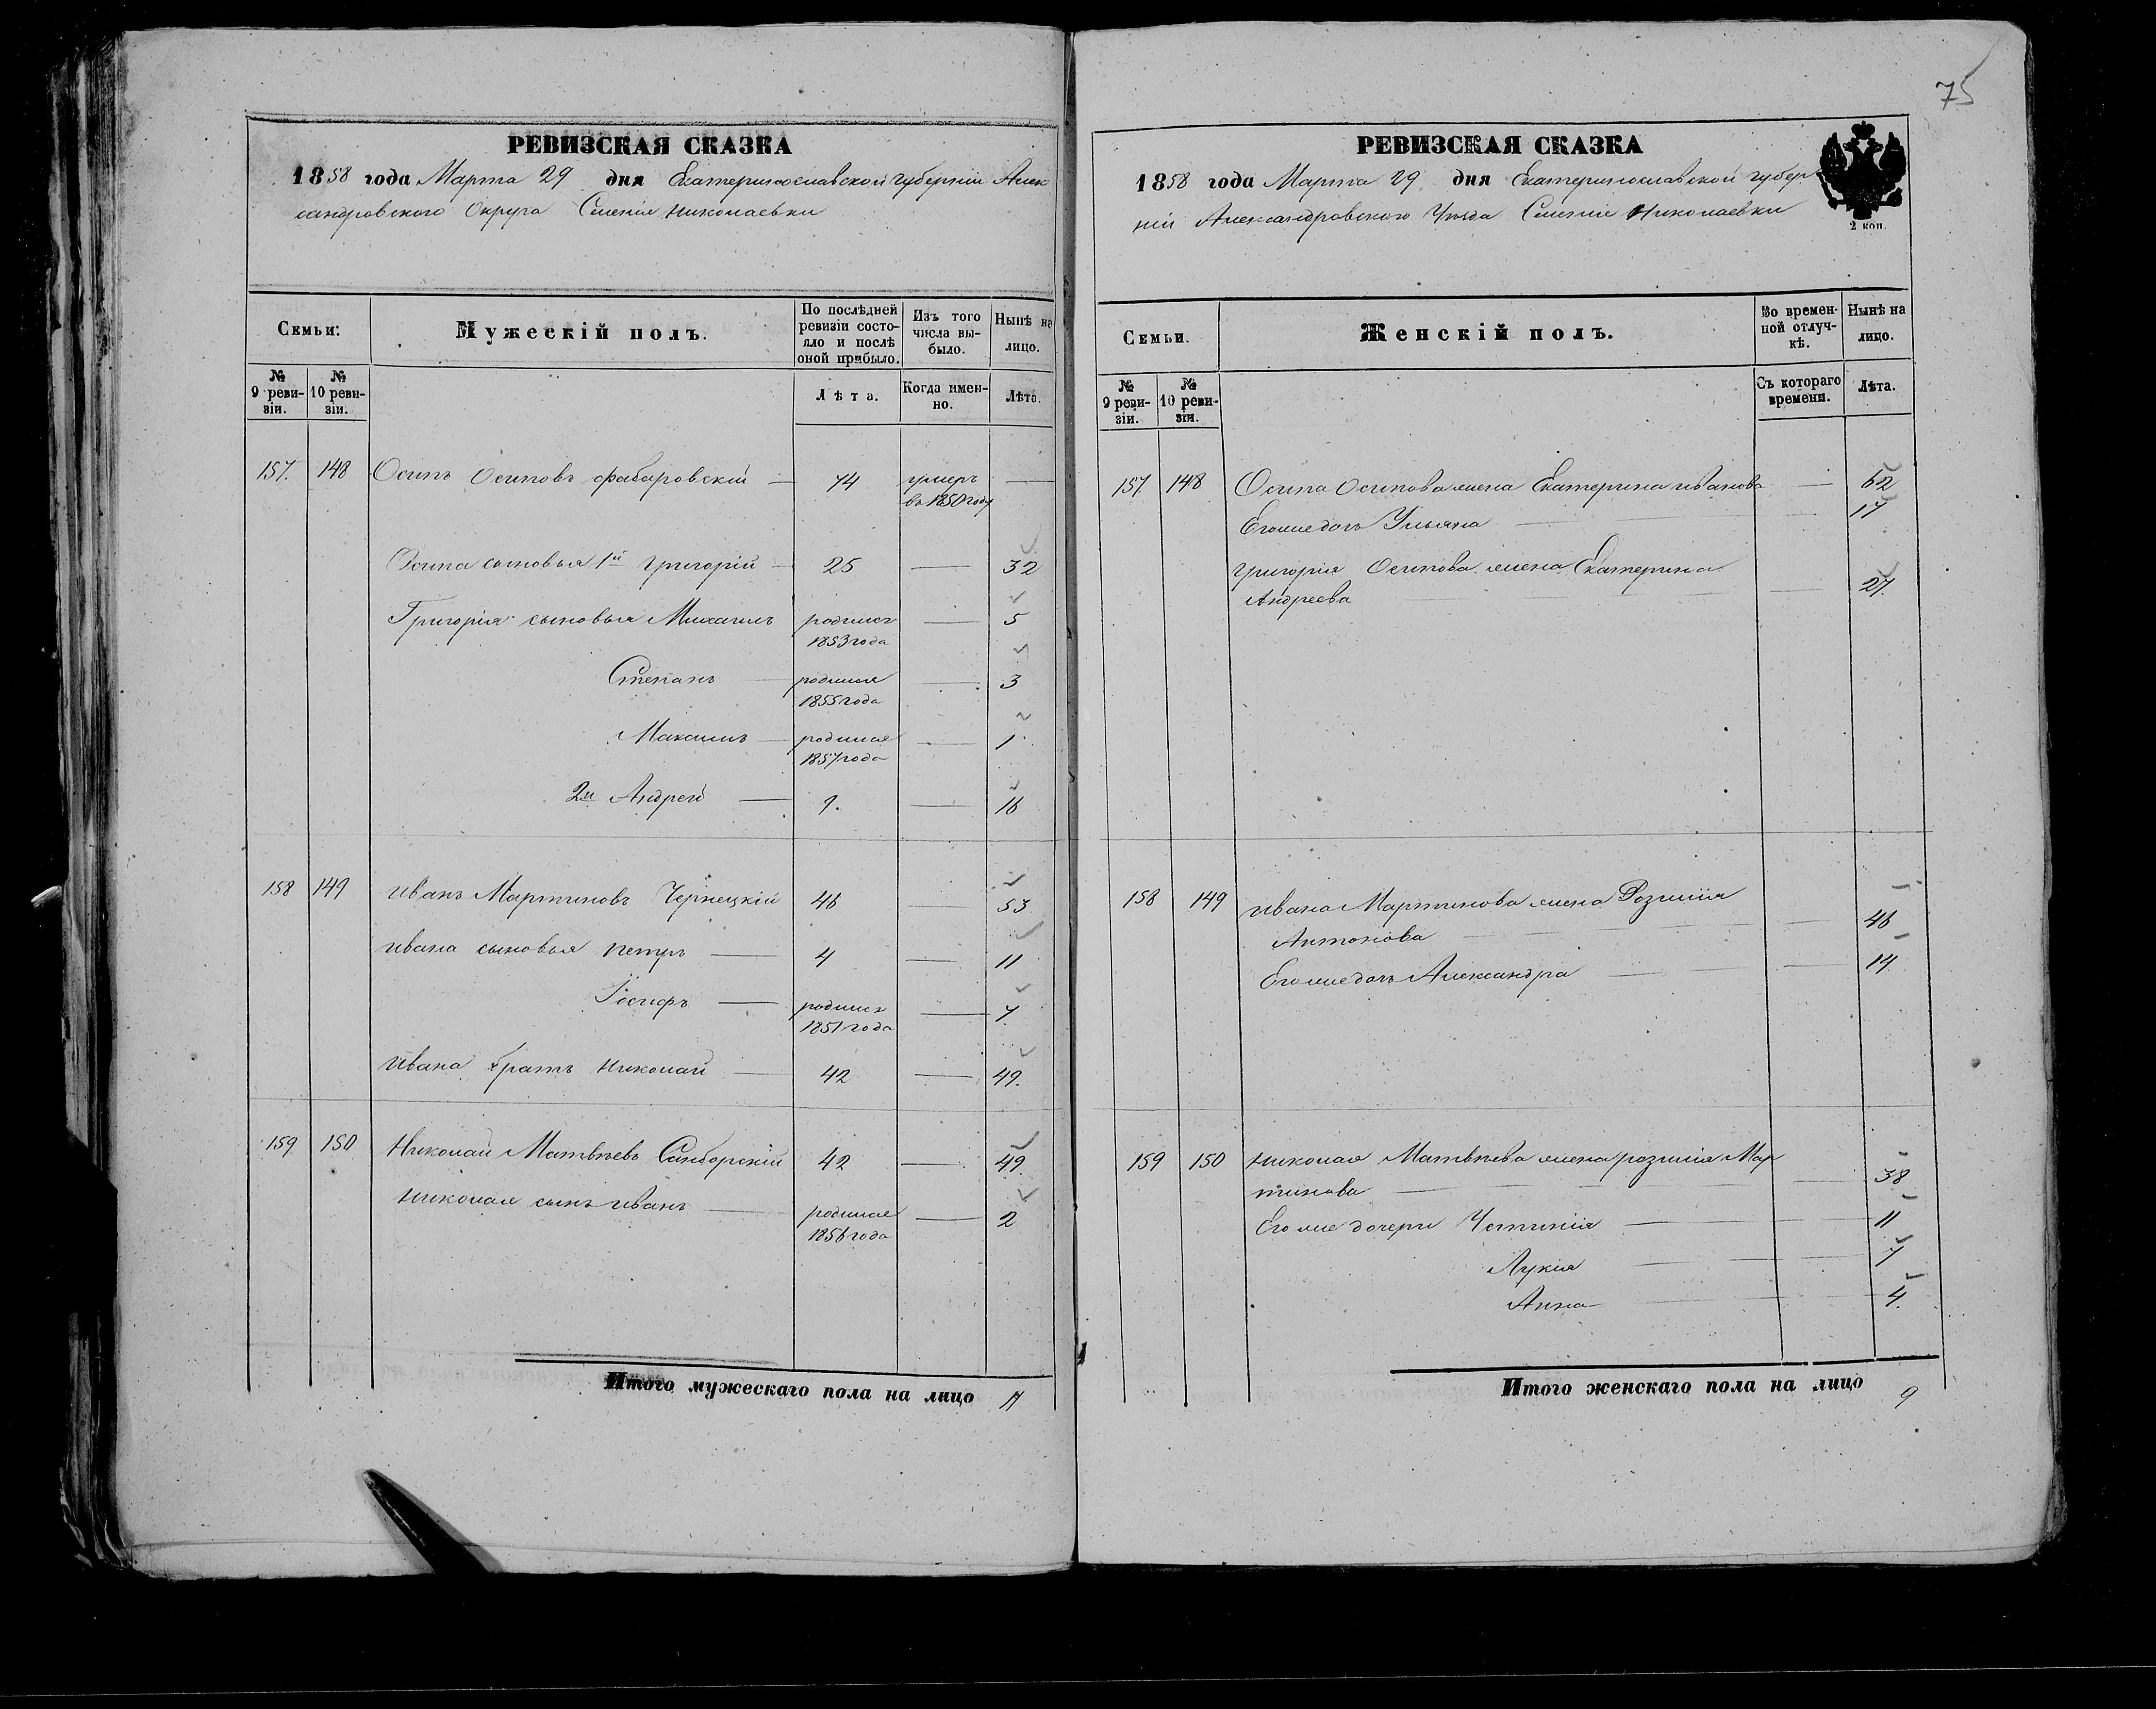 75
РЕВИЗСКАЯ СКАЗКА
1858 года Марта 29 дня Екатеринославской губерніи Алек
сандровского Округа Селеніе Николаевки
Семьи:
Мужескій полъ.
По послѣдней ревизіи состояло и послѣ оной прибыло.
Изъ того числа выбыло.
Нынѣ на лицо.
№ 9 ревизіи.
№ 10 ревизіи.
Лѣта.
Когда именно.
Лѣта.
157. 148 Осипъ Осиповъ Фабаровскій — 74 умеръ —
въ 1850 году
Осипа сыновья 1й Григорій — 25 — 32
Григорія сыновья Михаилъ родился — 5
1853 года
Степанъ — родился — 3
1855 года
Максимъ — родился — 1
1857 года
2й Андрей — 9. — 16
158 149 Иванъ Мартиновъ Чернецкій 46 — 53
Ивана сыновья Петръ — 4 — 11
Іосифъ — родился — 7
1851 года
Ивана братъ Николай — 42 — 49.
159 150 Николай Матвѣевъ Самборскій 42 — 49
Николая сынъ Иванъ — родился — 2
1856 года
Итого мужескаго пола на лицо 11
РЕВИЗСКАЯ СКАЗКА
1858 года Марта 29 дня Екатеринославской губер
ніи Александровского Уѣзда Селеніе Николаевки
2 коп.
Семьи.
Женскій полъ.
Во временной отлучкѣ.
Нынѣ на лицо.
№ 9 ревизіи.
№ 10 ревизіи.
Съ котораго времени.
Лѣта.
157 148 Осипа Осипова жена Екатерина Иванова — 62
Его же дочь Ульяна — 17
Григорія Осипова жена Екатерина
Андреева — 27.
158 149 Ивана Мартинова жена Розилія
Антонова — 46
Его же дочь Александра — 14
159 150 Николая Матвѣева жена Розилія Мар
тинова — 38
Его же дочери Устинія — 11
Лукія — 7
Анна — 4.
Итого женскаго пола на лицо 9